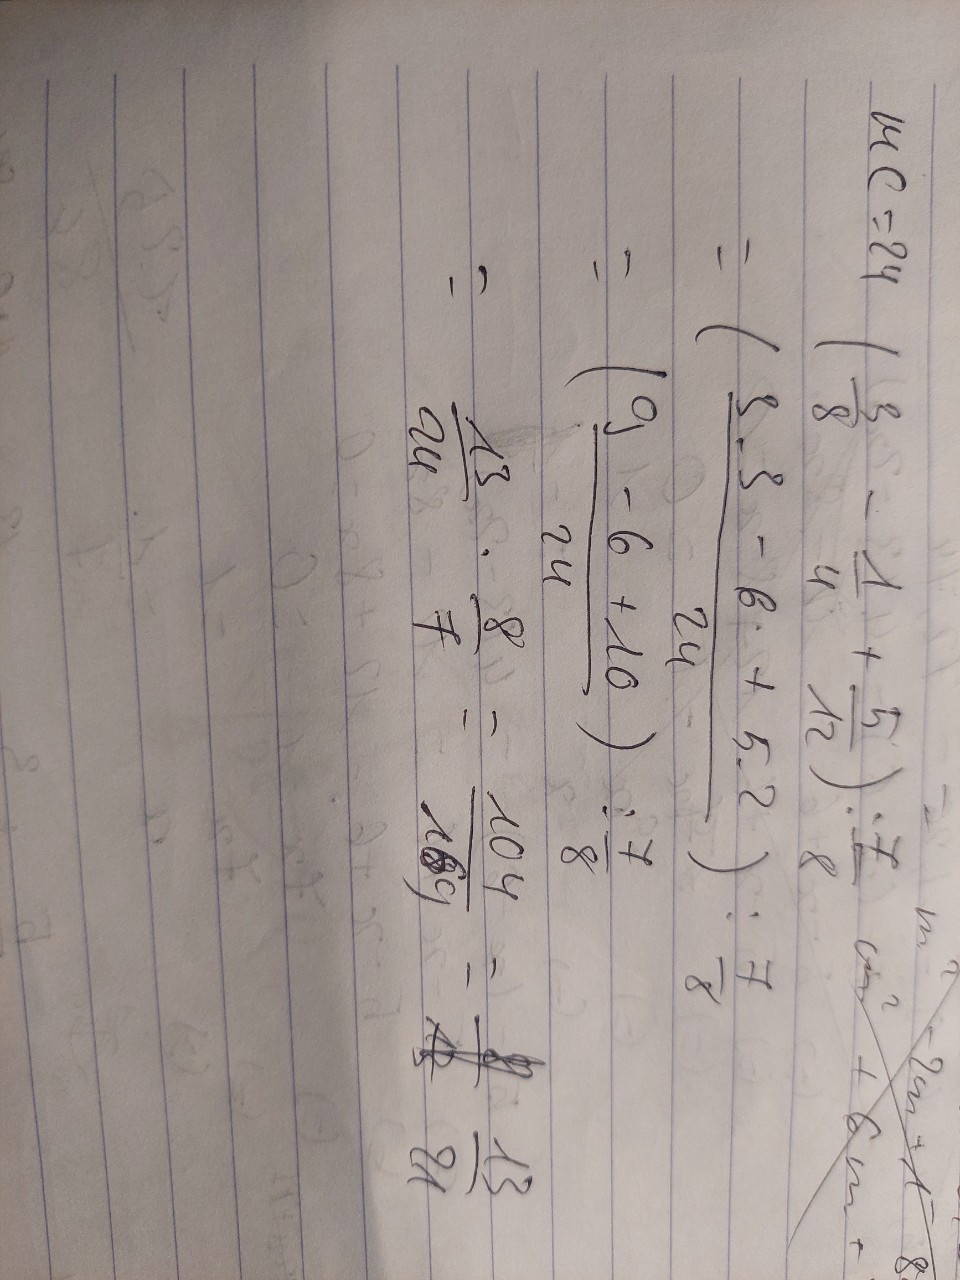 m² - 2m + 1 - 8
m² + 6m +
MC = 24 ( 3/8 - 1/4 + 5/12 ) : 7/8
= ( (3·3 - 6· + 5·2)/24 ) : 7/8
= ( (9 - 6 + 10)/24 ) : 7/8
= 13/24 · 8/7 = 104/168 = 13/21